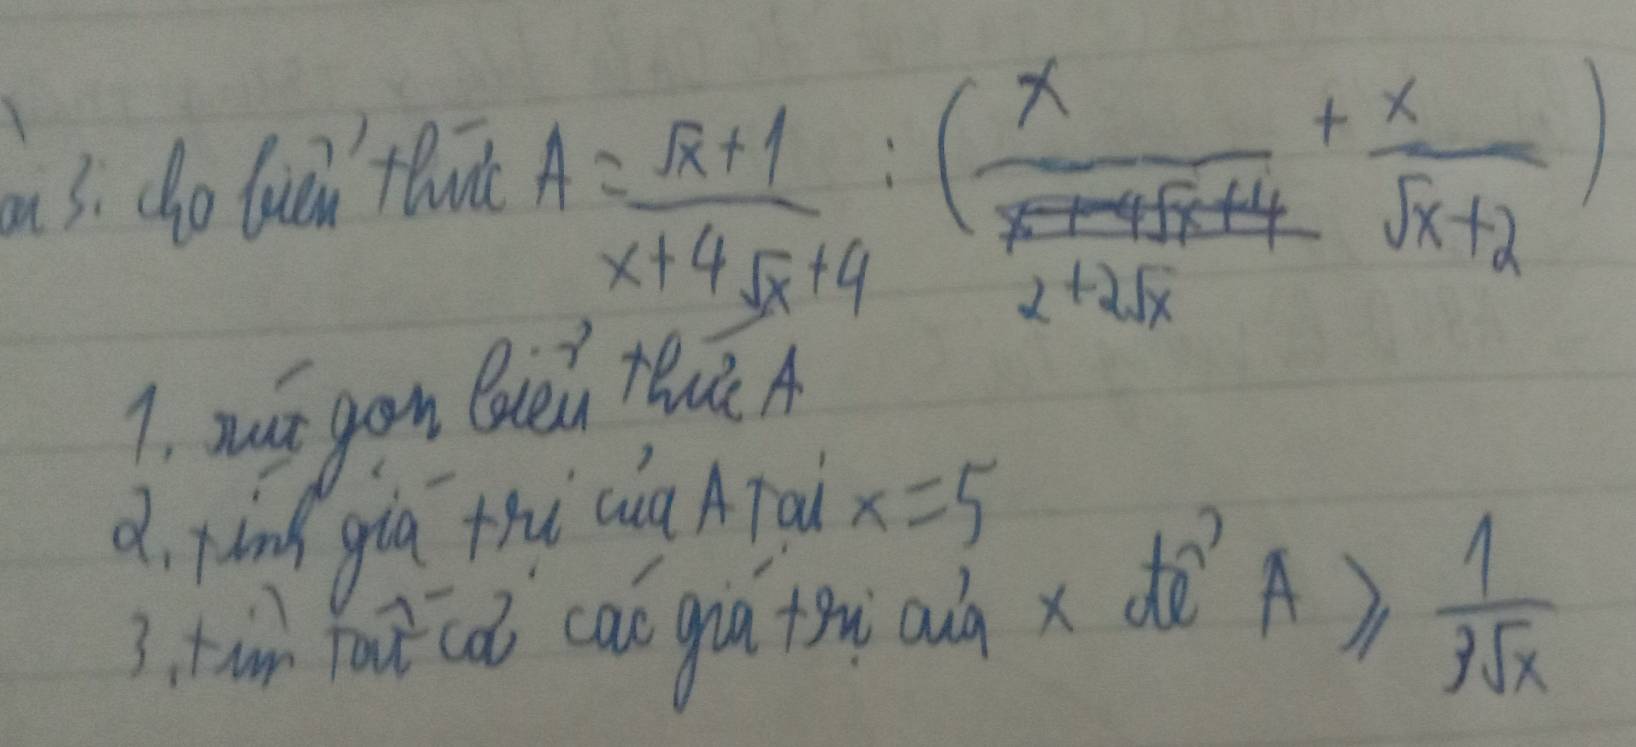 ài 3. Cho biểu thức A = √x+1 / x+4√x+4 : ( x / 2+2√x + x / √x+2 )
1. rút gọn biểu thức A
2. tính giá trị của A Tại x = 5
3. tìm Tất cả các giá trị của x để A ⩾ 1 / 3√x